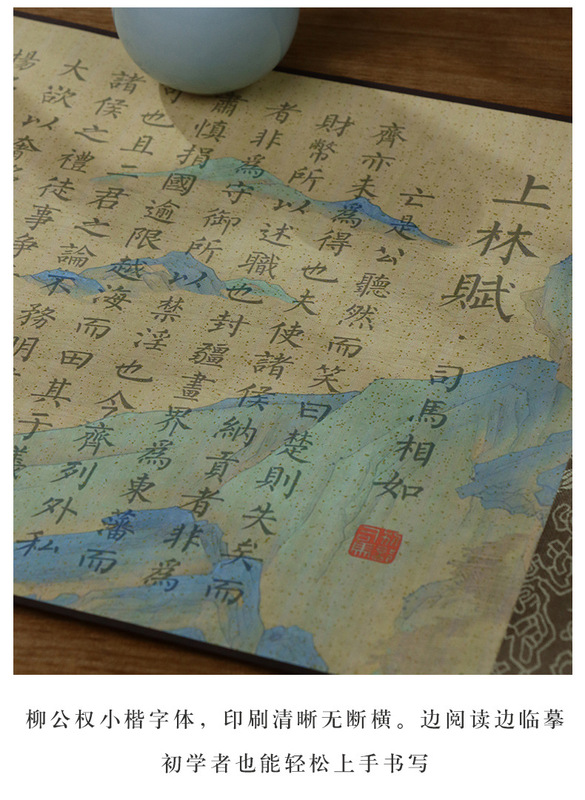 上林賦·司馬相如
亡是公聽然而笑曰楚則失矣而
齊亦未為得也夫使諸侯納貢者非為
財幣所以述職也封疆畫界為東藩而
者非為守御所以禁淫也今齊列外私
肅慎捐國逾限越海而田其于義
也且二君之論不務明
諸侯之禮徒事爭
大欲以奢
柳公权小楷字体，印刷清晰无断横。边阅读边临摹
初学者也能轻松上手书写